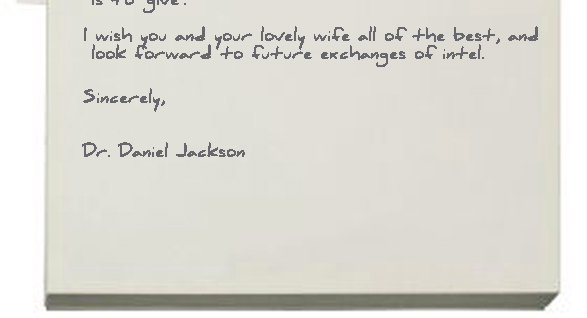 is to give.
I wish you and your lovely wife all of the best, and
look forward to future exchanges of intel.
Sincerely,
Dr. Daniel Jackson